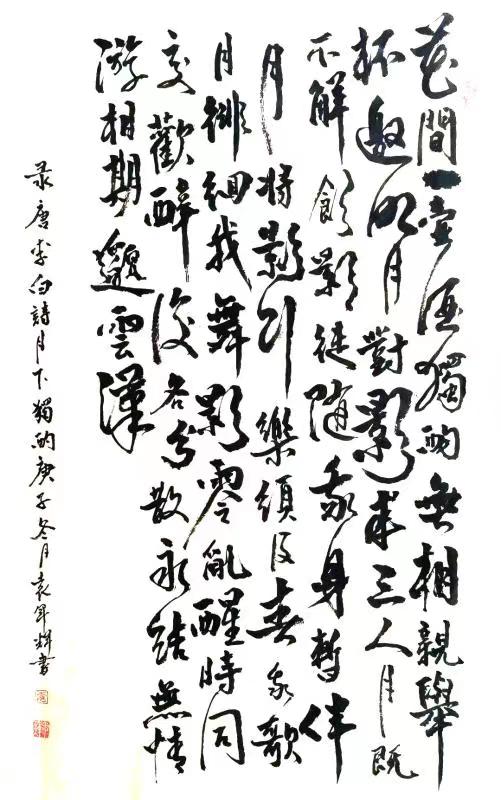 花間一壺酒獨酌無相親舉
杯邀明月對影成三人月既
不解飲影徒随我身暫伴
月将影行樂須及春我歌
月徘徊我舞影零亂醒時同
交歡醉後各分散永結無情
游相期邈雲漢
录唐李白詩月下獨酌庚子冬月袁書